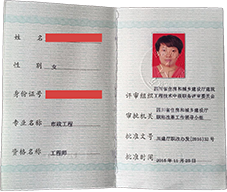 姓 名
性 别 女
身份证号
专业名称 市政工程
资格名称 工程师
评审组织 四川省住房和城乡建设厅建筑
工程技术中级职务评审委员会
审批机关 四川省住房和城乡建设厅
职称改革工作领导小组
批准文号
批准时间